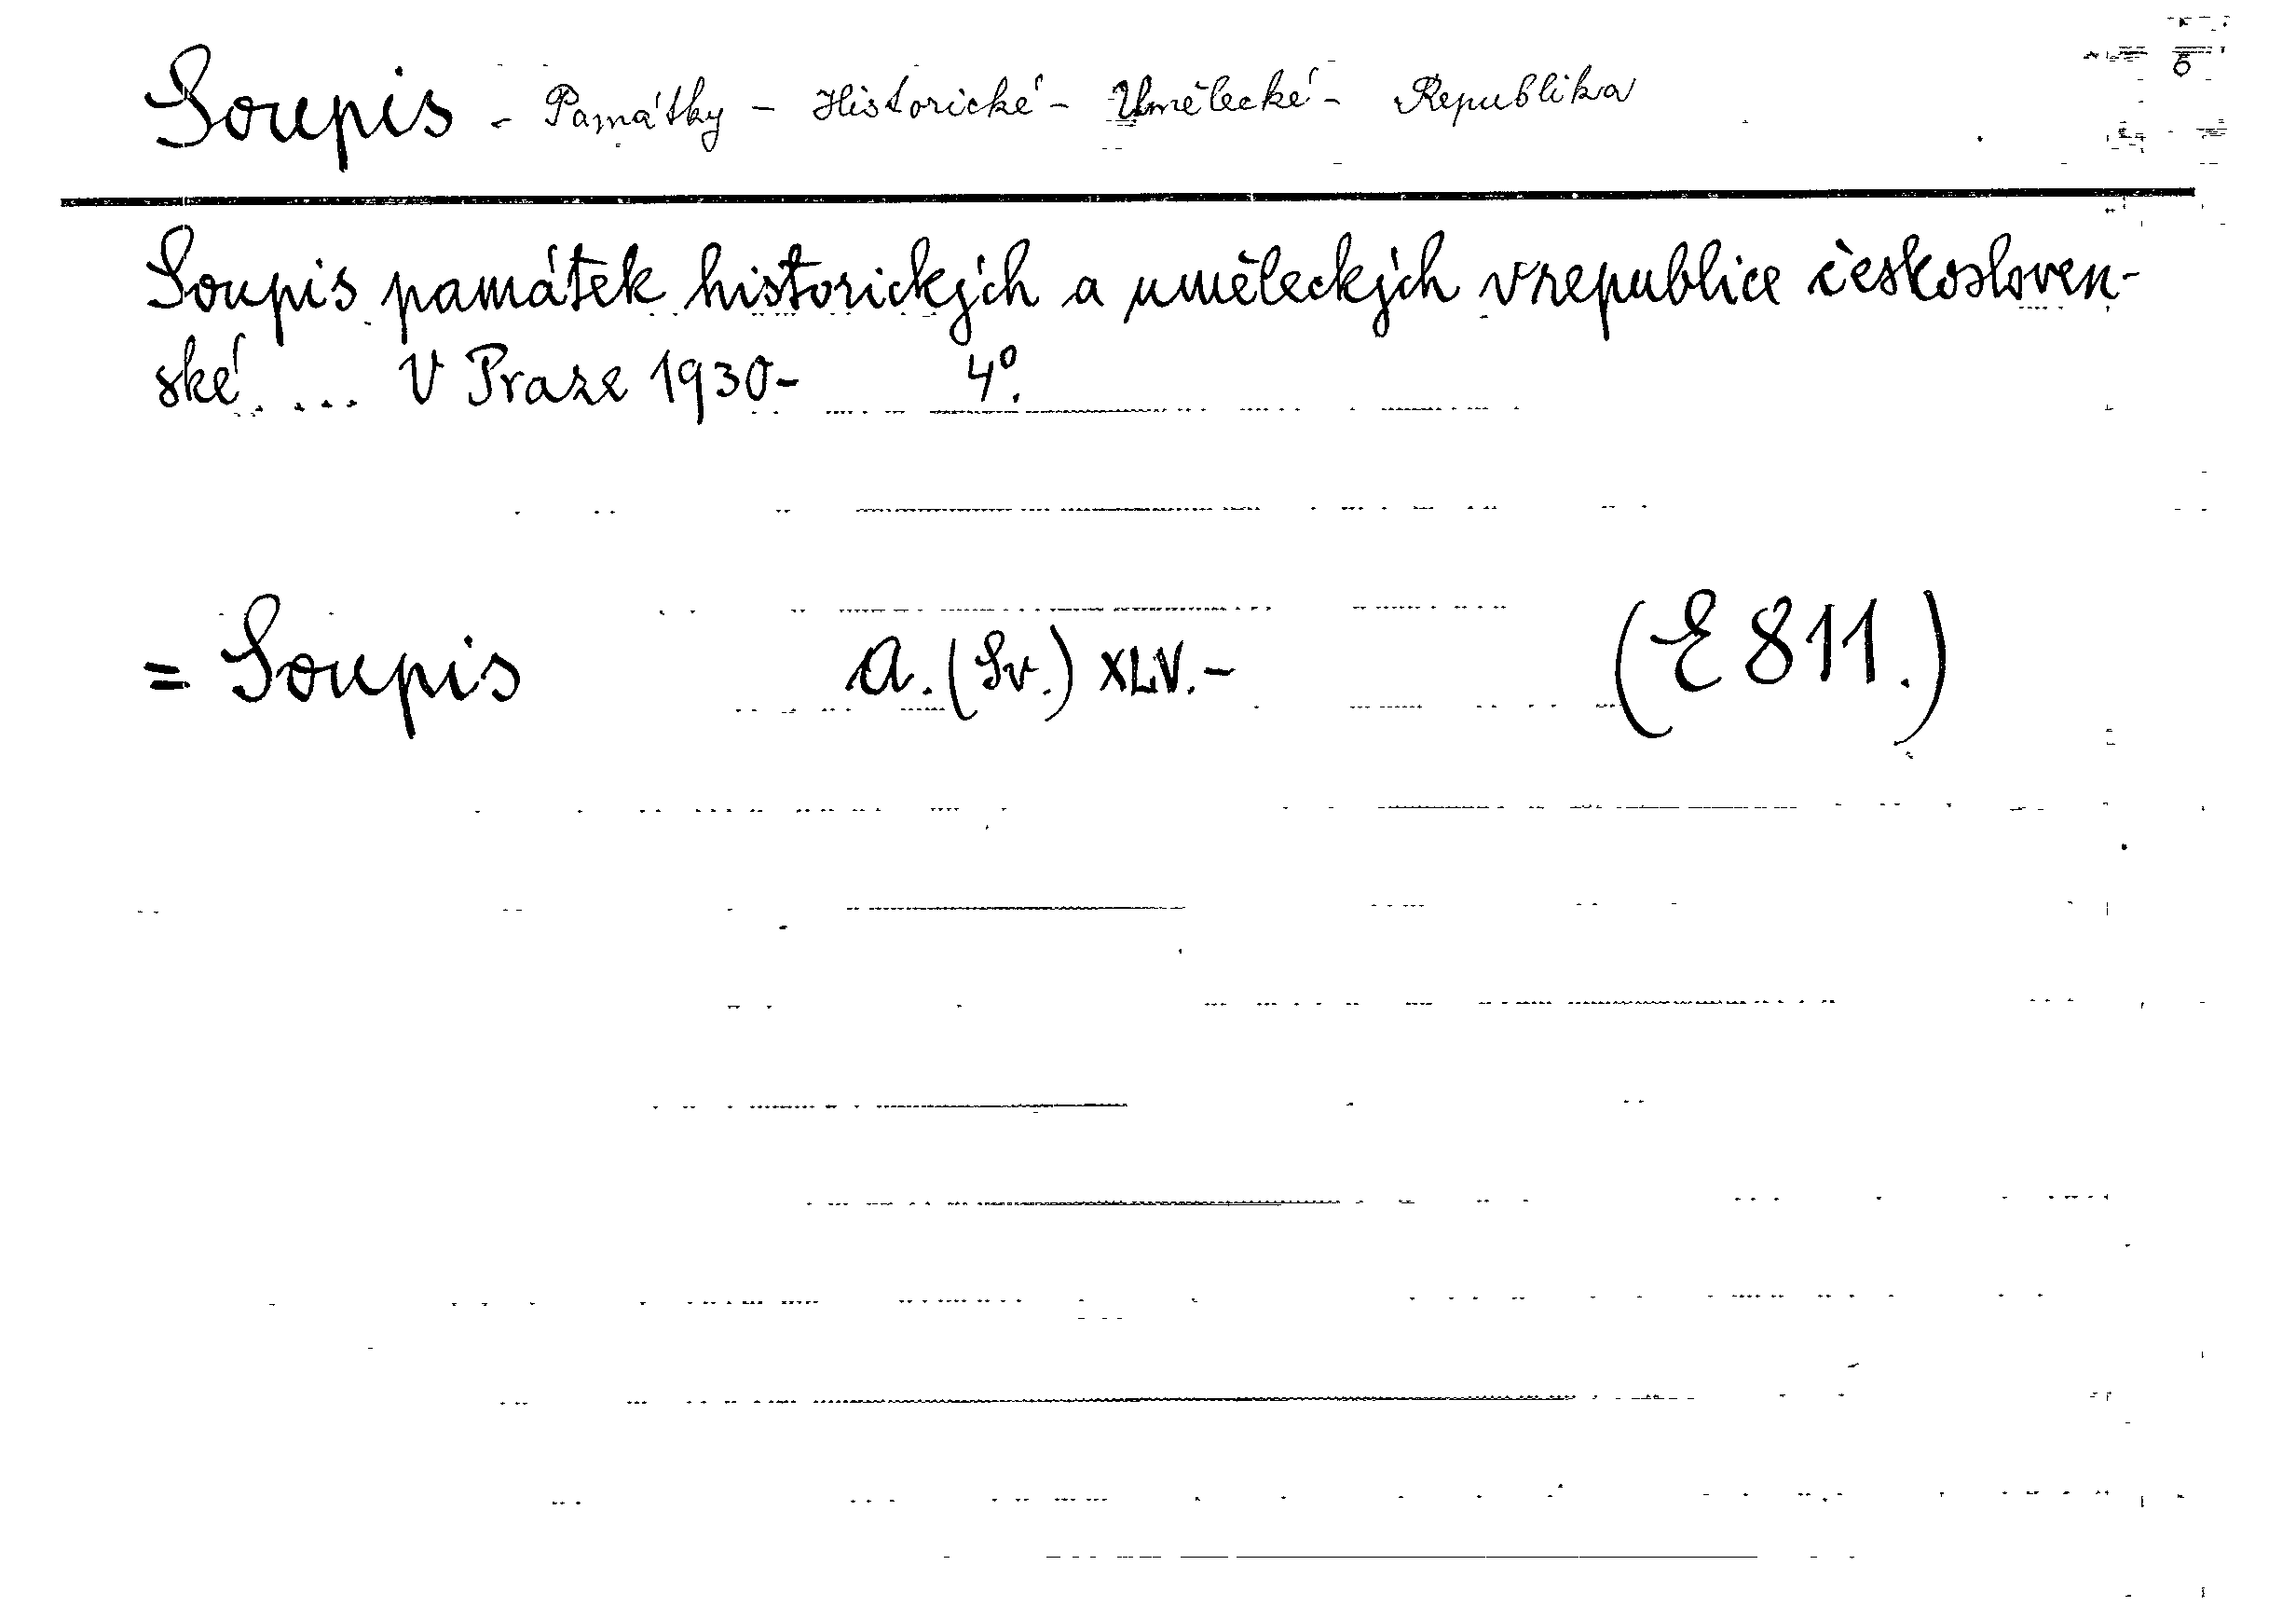 Soupis - Památky - Historické - Umělecké - Republika
Soupis památek historických a uměleckých v republice českosloven-
ské. ... V Praze 1930- 4º.
= Soupis a. (Sv.) XLV.- (E 811.)